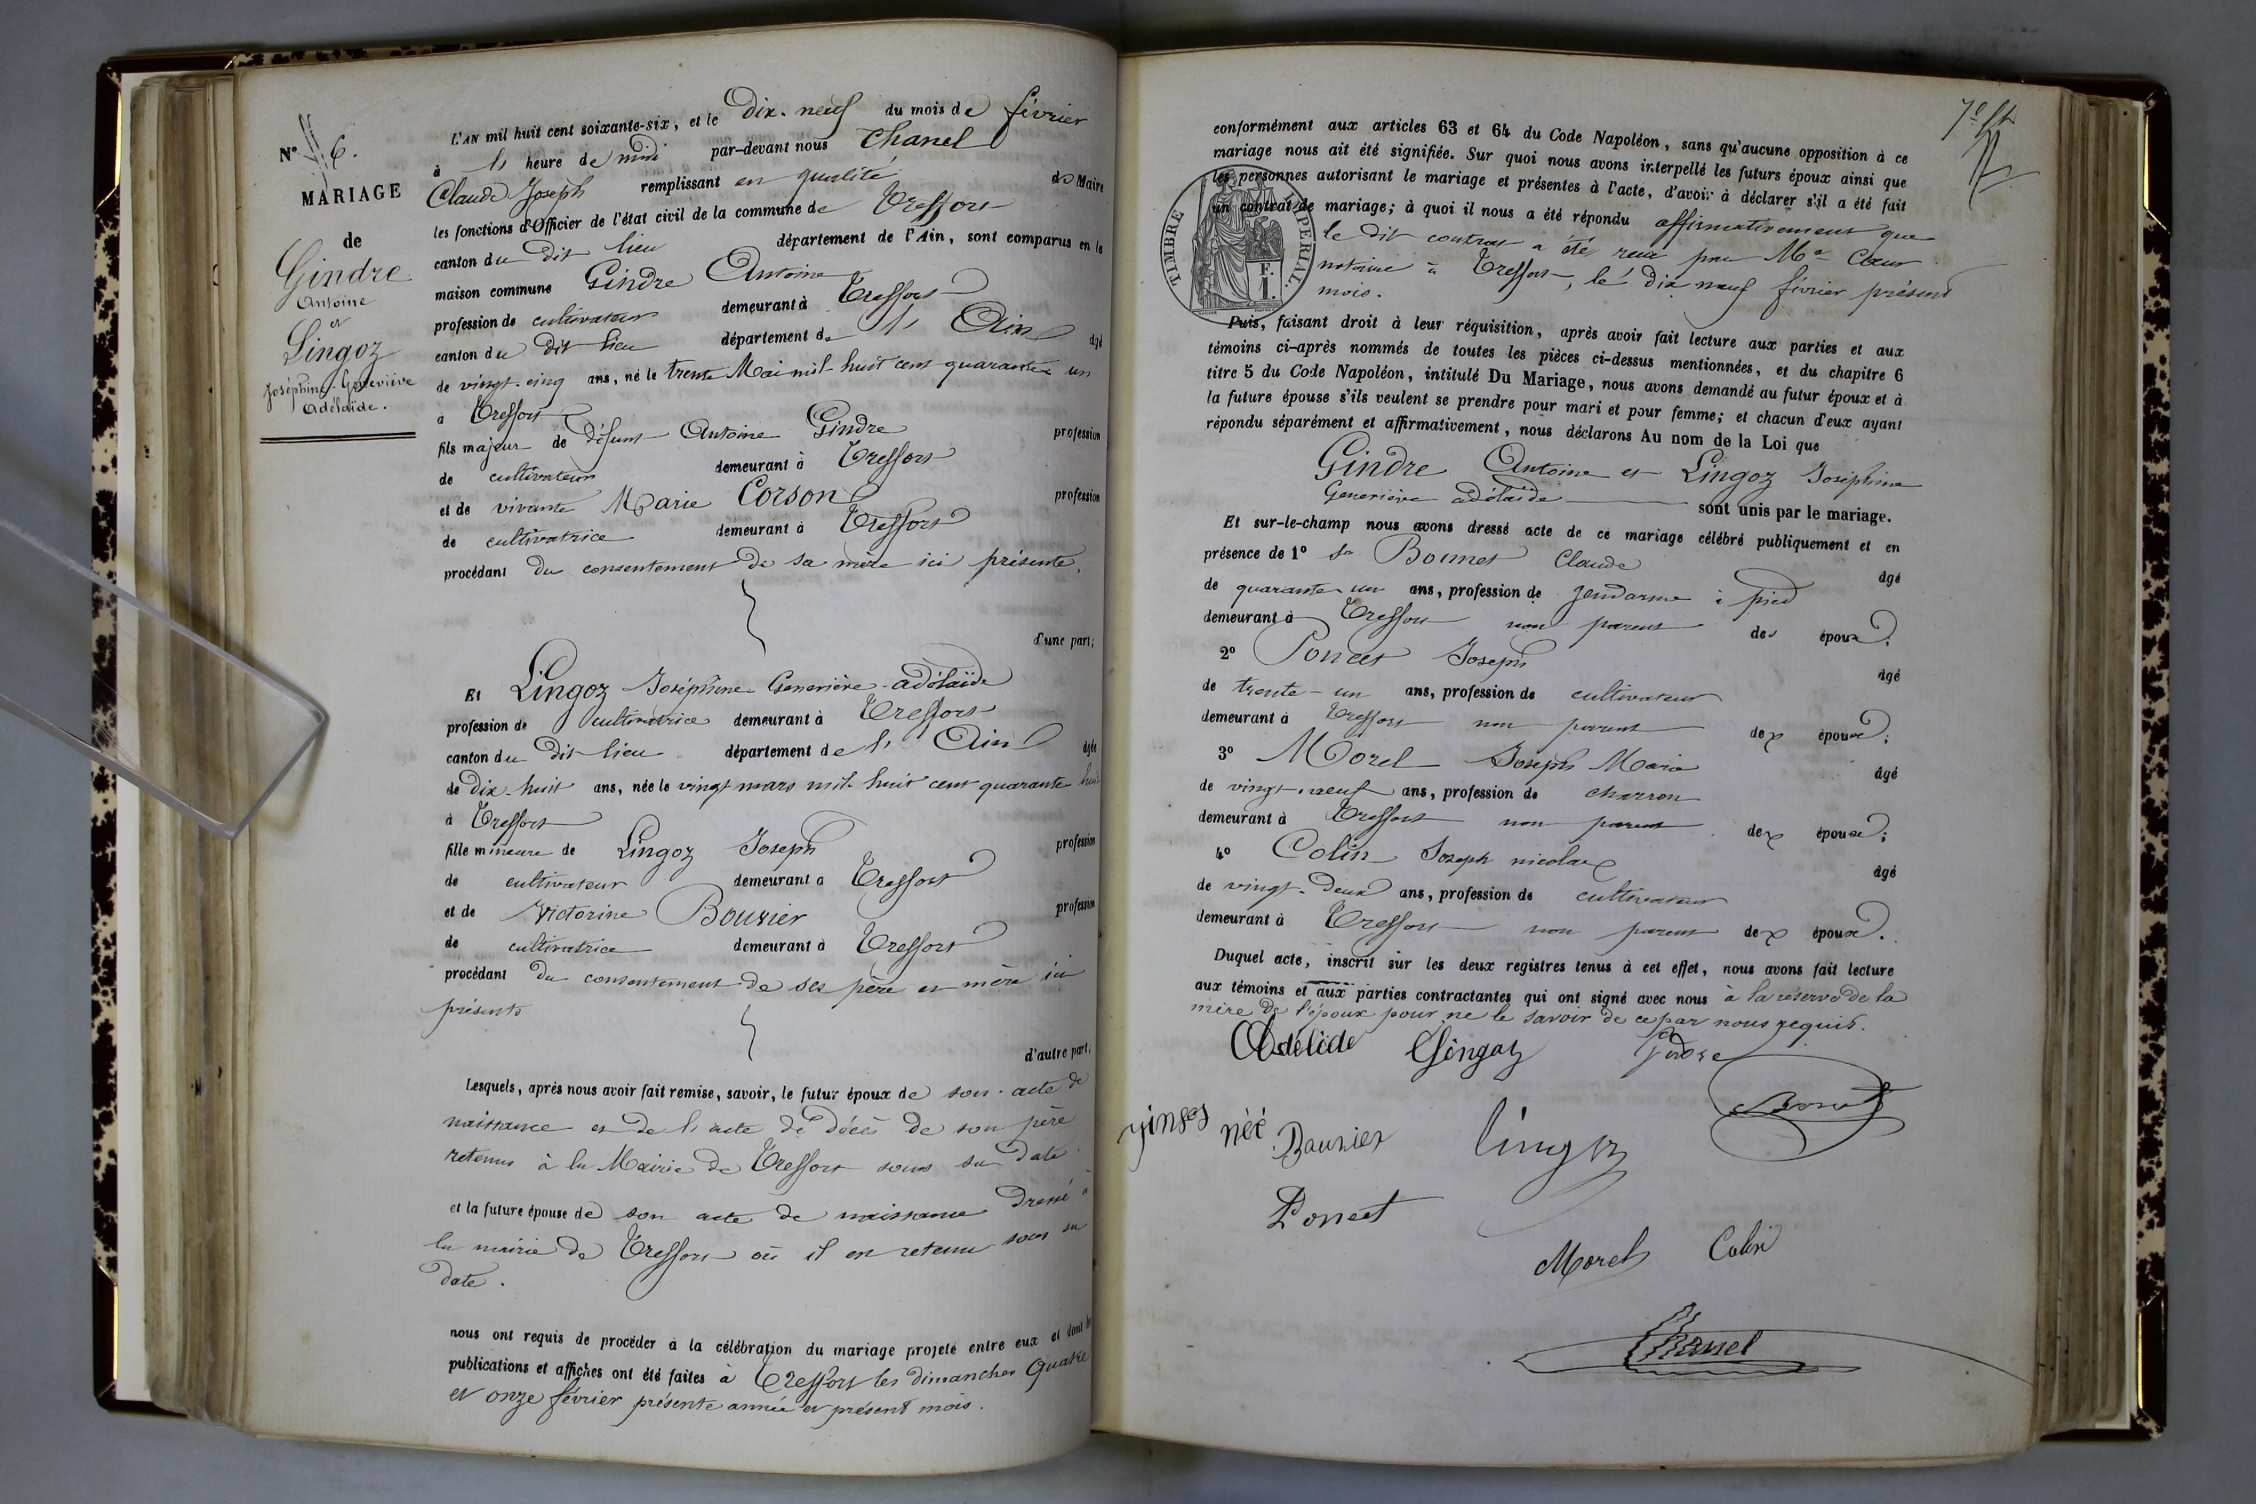 N° 6.
MARIAGE
de
Gindre
Antoine
et
Lingoz
Joséphine Geneviève
Adélaïde.
L'AN mil huit cent soixante-six, et le Dix-neuf du mois de février
à l' heure de midi par-devant nous Chanel
Claude Joseph remplissant en qualité de Maire
les fonctions d'Officier de l'état civil de la commune de Treffort
canton du dit lieu département de l'Ain, sont comparus en la
maison commune Gindre Antoine
profession de cultivateur demeurant à Treffort
canton du dit lieu département de l' Ain âgé
de vingt-cinq ans, né le trente Mai mil huit cent quarante un
à Treffort
fils majeur de défunt Antoine Gindre profession
de cultivateur demeurant à Treffort
et de vivante Marie Corson profession
de cultivatrice demeurant à Treffort
procédant du consentement de sa mère ici présente,
d'une part;
Et Lingoz Joséphine Geneviève adélaïde
profession de cultivatrice demeurant à Treffort
canton du dit lieu département de l' Ain âgée
de dix-huit ans, née le vingt mars mil huit cent quarante huit
à Treffort
fille mineure de Lingoz Joseph profession
de cultivateur demeurant à Treffort
et de Victorine Bouvier profession
de cultivatrice demeurant à Treffort
procédant du consentement de ses père et mère ici
présents
d'autre part.
Lesquels, après nous avoir fait remise, savoir, le futur époux de son acte de
naissance et de l'acte de décès de son père
retenus à la Mairie de Treffort sous sa date
et la future épouse de son acte de naissance dressé à
la mairie de Treffort où il est retenu sous sa
date.
nous ont requis de procéder à la célébration du mariage projeté entre eux et dont les
publications et affiches ont été faites à Treffort les dimanches quatre
et onze février présente année et présent mois.
conformément aux articles 63 et 64 du Code Napoléon, sans qu'aucune opposition à ce
mariage nous ait été signifiée. Sur quoi nous avons interpellé les futurs époux ainsi que
les personnes autorisant le mariage et présentes à l'acte, d'avoir à déclarer s'il a été fait
un contrat de mariage; à quoi il nous a été répondu affirmativement que
le dit contrat a été reçu par Me Cœur
notaire à Treffort, le dix neuf février présent
mois.
TIMBRE IMPERIAL.
F.
I.
Puis, faisant droit à leur réquisition, après avoir fait lecture aux parties et aux
témoins ci-après nommés de toutes les pièces ci-dessus mentionnées, et du chapitre 6
titre 5 du Code Napoléon, intitulé Du Mariage, nous avons demandé au futur époux et à
la future épouse s'ils veulent se prendre pour mari et pour femme; et chacun d'eux ayant
répondu séparément et affirmativement, nous déclarons Au nom de la Loi que
Gindre Antoine et Lingoz Joséphine
Geneviève adélaïde sont unis par le mariage.
Et sur-le-champ nous avons dressé acte de ce mariage célébré publiquement et en
présence de 1° Sr Bonnet Claude âgé
de quarante un ans, profession de gendarme à pied
demeurant à Treffort non parent des époux;
2° Poncet Joseph âgé
de trente-un ans, profession de cultivateur
demeurant à Treffort non parent des époux;
3° Morel Joseph Marie âgé
de vingt-neuf ans, profession de charron
demeurant à Treffort non parent des époux;
4° Colin Joseph nicolas âgé
de vingt-deux ans, profession de cultivateur
demeurant à Treffort non parent des époux.
Duquel acte, inscrit sur les deux registres tenus à cet effet, nous avons fait lecture
aux témoins et aux parties contractantes qui ont signé avec nous à la réserve de la
mère de l'époux pour ne le savoir de ce par nous requis.
Adélide Lingoz Gindre
née Bouvier Lingoz Bonnet
Poncet
Morel Colin
Chanel